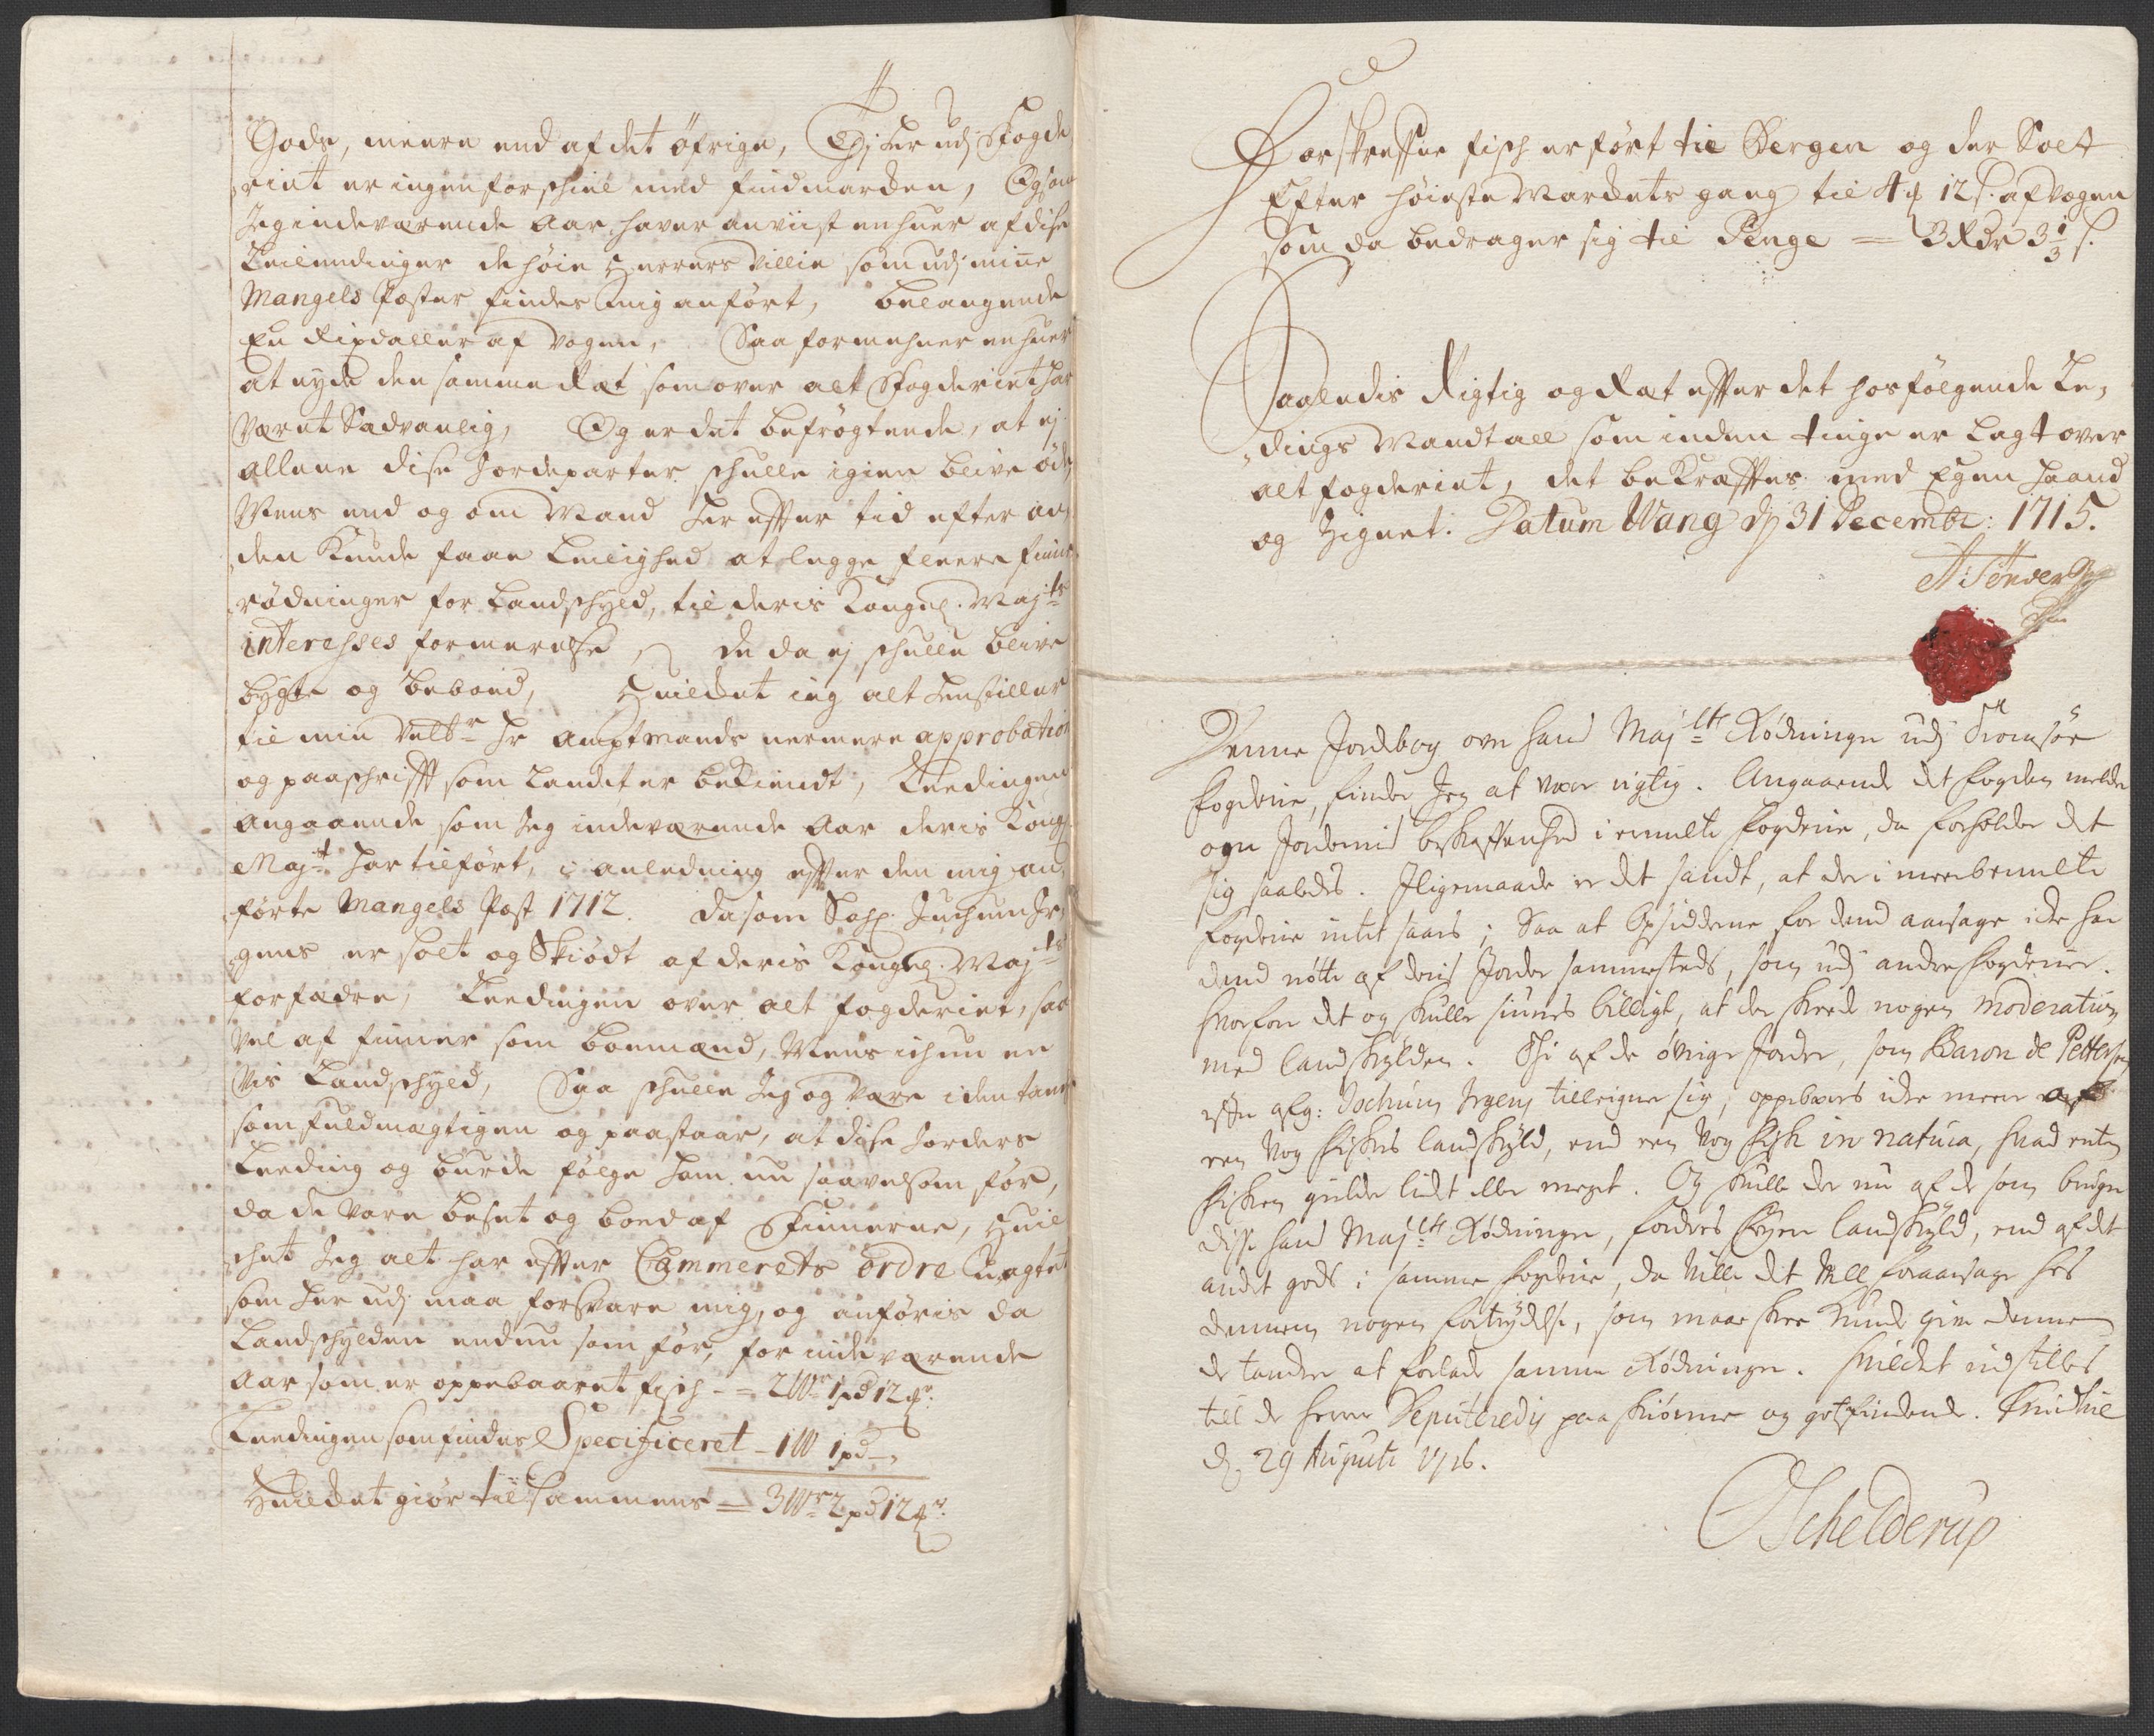 Gods, meere end af det øfrige, Thj her udj Fogde
riet er ingen forschiel med findmarken, Ogsom
Jeg indeværende Aar haver anviist enhver af disse
Leilendinger de høie Herrers Villie som udj mine
Mangels Poster findes mig anført, belangende
En Rixdaller af Vogen, Saa formehner enhver
at nyde den samme Ræt som over alt Fogderiet har
Været Sædvanlig, Og er det befrøgtende, at ej
allene disse Jordeparter schulle igien blive øde,
Mens end og om Mand her effter tid efter an,
den Kunde faae Leilighed at legge fleere finne
rødninger for Landschyld, til deris Kongel. Maj.ts
interesses formerelse, de da ej schulle blive
bygte og beboed, Huilcket ieg alt henstiller
til min Velb.r Hr Amptmands nermere approbation
og paaschrifft som Landet er bekiendt, Leedingen
angaaende som Jeg indeværende Aar deris Kongl.
Maj.t har tilført, i anledning effter den mig an,
førte Mangels Post 1712. Dasom Sahl. Juchum Jr,
gens er solt og Skiødt af deris Kongel. Maj.ts
forfædre, Leedingen over alt fogderiet, saa
vel af finner som boemænd, Mens ichun en
Vis Landschyld, Saa schulle Jeg og være i den tancke
som fuldmægtigen og paastaar, at disse Jorders
Leeding og burde følge ham nu saavelsom før,
da de vare besat og boed af Finnerne, Huil
chet Jeg alt har effter Cammerets ordre
som her udj maa forsvare mig, og anføris da
Landschylden endnu som før, for indeværende
Aar som er oppebaaret fisch - = 2W 1pd 12
Leedingen som findes Specificeret - 1W 1pd -
Huilcket giør tilsammens = 3W 2pd 12

Forskrefne fisch er ført til Bergen og der Solt
Efter høieste Markets gang til 4 12 s. af Vogen
som da bedrager sig til Penge = 3 Rdr 3 1/3 s.
Saaledis Rigtig og Ræt effter det hosfølgende Le,
dings Mandtall som inden tinge er Lagt over
alt fogderiet, det bekræfftes med Egen haand
og Zignet. Datum Wang d 31 Decembr: 1715.
A Tønder
Denne Jordbog over hans Maj.ts Rødninger udj Tromsøe
fogderie, finder Jeg at være rigtig. Angaaende det fogden melder
om Jordernis beskaffenhed i ermelte fogderie, da forholder det
sig saaledes. Iligemaade er det sandt, at der i meerbemelte
fogderie intet saaes; Saa at Opsidderne for dend aarsage icke har
dend nøtte af deris Jorder sammesteds, som udj andre fogderier.
Hvorfore det og skulle siunes billigt, at der skeede nogen moderation
med landskylden. Thi af de øvrige Jorder, som Baron de Pettersen
efter afg: Jochum Irgens tilleigner sig, oppebæres icke meere af
een Vog Fiskes landskyld, end een Vog Fisk in natura, hvad enten
Fisken gielder lidet eller meget. Og skulle der nu af de som bruger
disse hans Maj.ts Rødninger, fordres høyere landskyld, end af det
andet gods i samme fogderie, da ville det Vell foraarsage hos
dennem nogen fortrydelse, som maaskee kunde give dennem
de tancker at forlade samme Rødninger. Hvilcket indstilles
till de Herrer Deputeredis paaskiønne og gotfindende.
d. 29 Augusti 1716.
O Schelderup